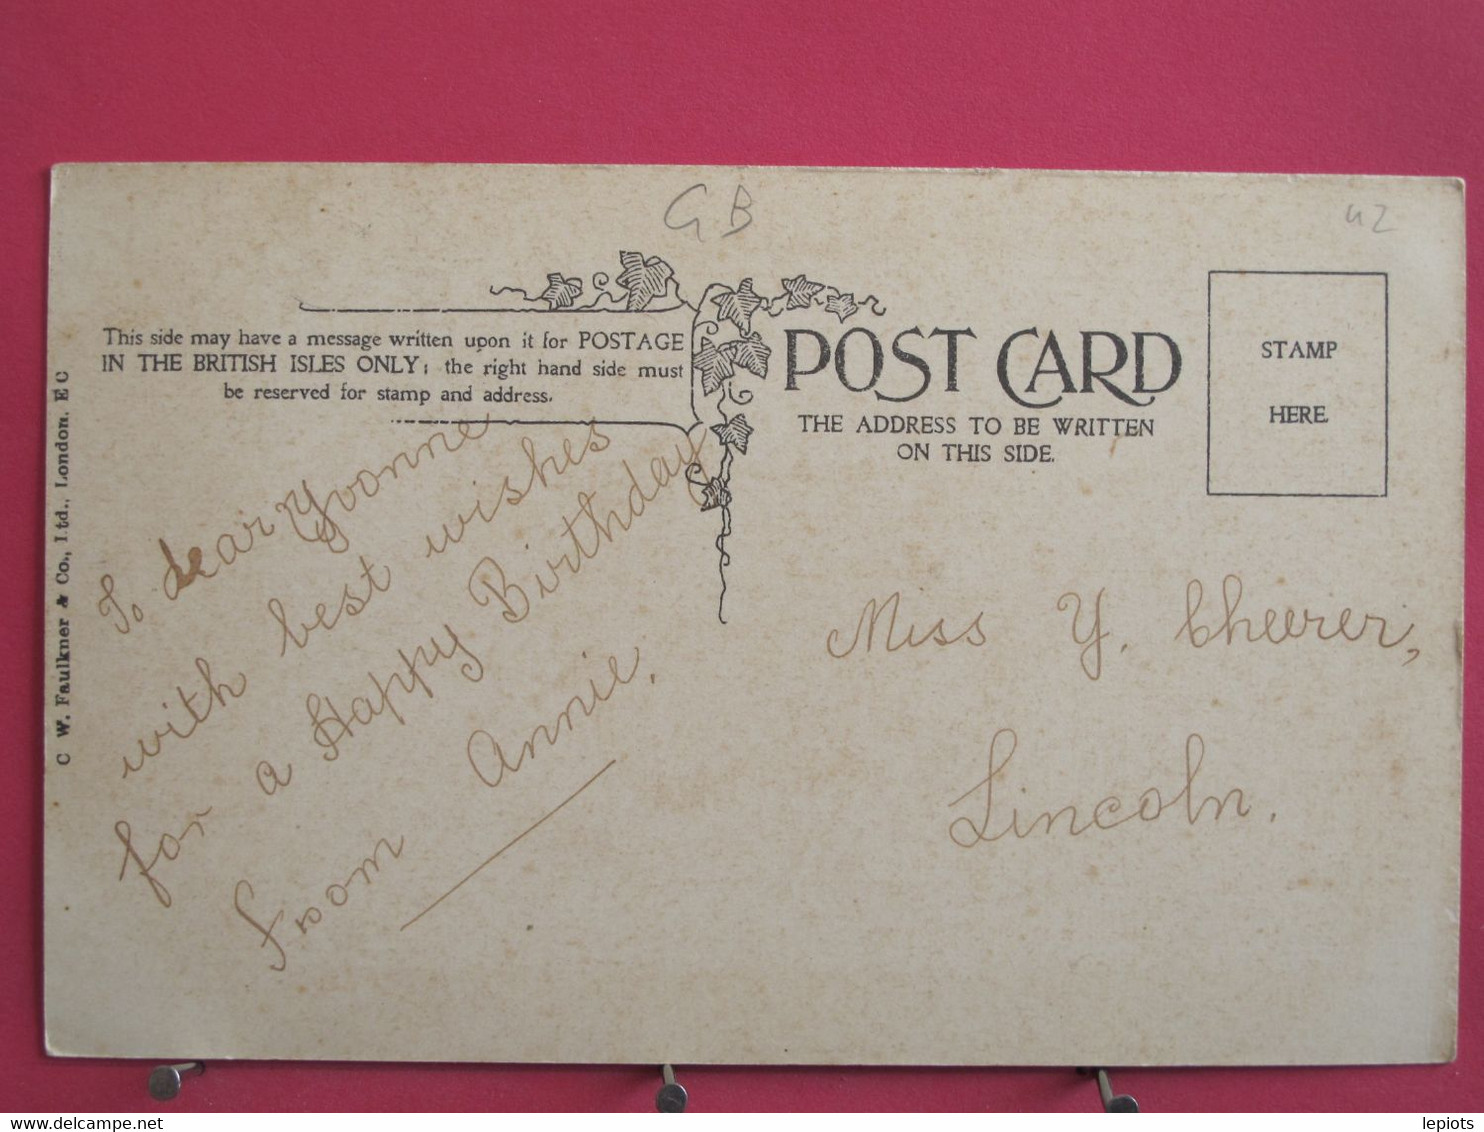 GB
42
This side may have a message written upon it for POSTAGE
IN THE BRITISH ISLES ONLY; the right hand side must
be reserved for stamp and address.
POST CARD
THE ADDRESS TO BE WRITTEN
ON THIS SIDE.
STAMP
HERE.
C. W. Faulkner & Co., Ltd., London. E C
To dear Yvonne
with best wishes
for a Happy Birthday
From Annie.
Miss Y. Cheerer,
Lincoln.
lepiots